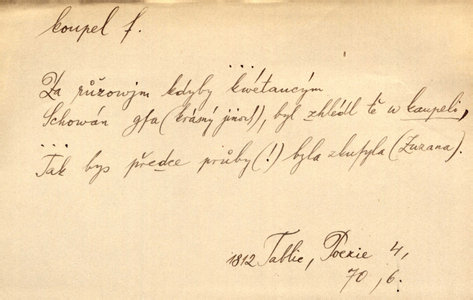 koupel f.
...
Za růzowým kdyby kwětancým
Schowán gsa (krásný jinoch), byl zhlédl tě w kaupeli,
...
Tak bys předce průby (!) byla zkusyla (Zuzana).
1812 Tablic, Poezie 4,
70, 6.